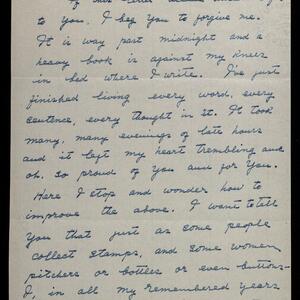 If this letter
to You, I beg You to forgive me.
It is way past midnight and a
heavy book is against my knees
in bed where I write. I've just
finished living every word, every
sentence, every thought in it. It took
many, many evenings of late hours
and it left my heart trembling and
oh, so proud of you and for You.
Here I stop and wonder how to
improve the above. I want to tell
You that just as some people
collect stamps, and some women
pitchers or bottles or even buttons-
I, in all my remembered years